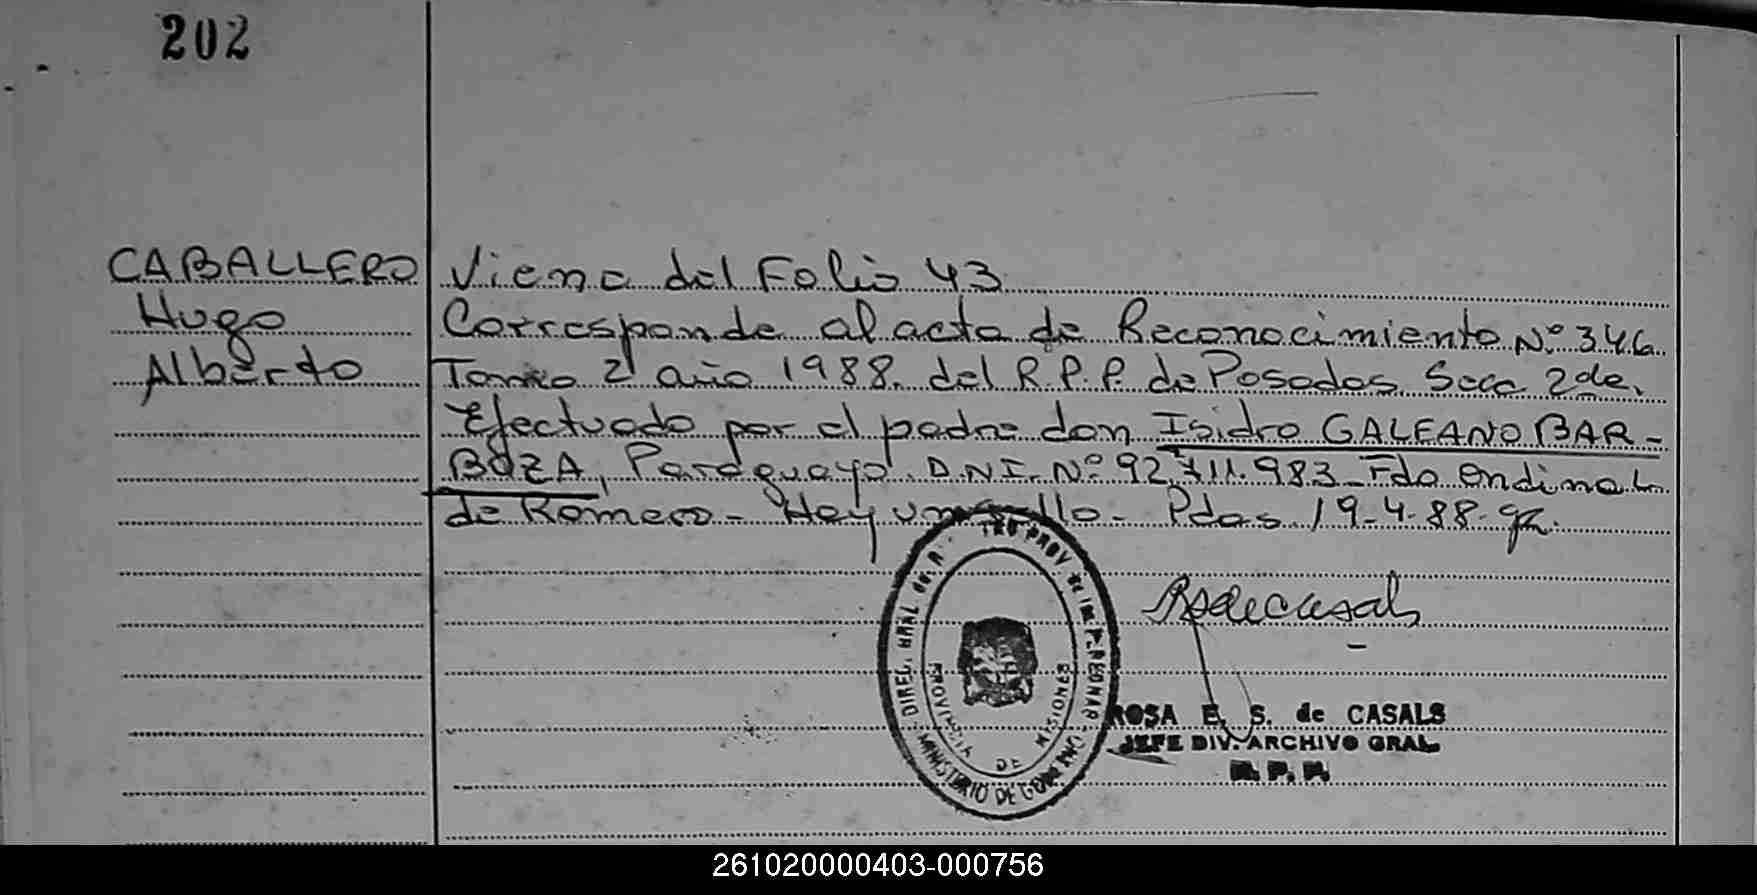 202
CABALLERO
Hugo
Alberto
Viene del Folio 43
Corresponde al acta de Reconocimiento Nº 346
Tomo 2 año 1988. del R.P.P. de Posadas Secc 2da.
Efectuado por el padre don Isidro GALEANO BAR-
BOZA, Paraguayo D.N.I. Nº 92.711.983 Fdo Ondina L.
de Romero - Hay un sello - Pdas. 19-4-88.
DIREC. GRAL de. R TRO PROV. de las PERSONAS
MINISTERIO DE GOBIERNO
PROVINCIA DE MISIONES
ROSA E. S. de CASALS
JEFE DIV. ARCHIVO GRAL
R. P. P.
261020000403-000756